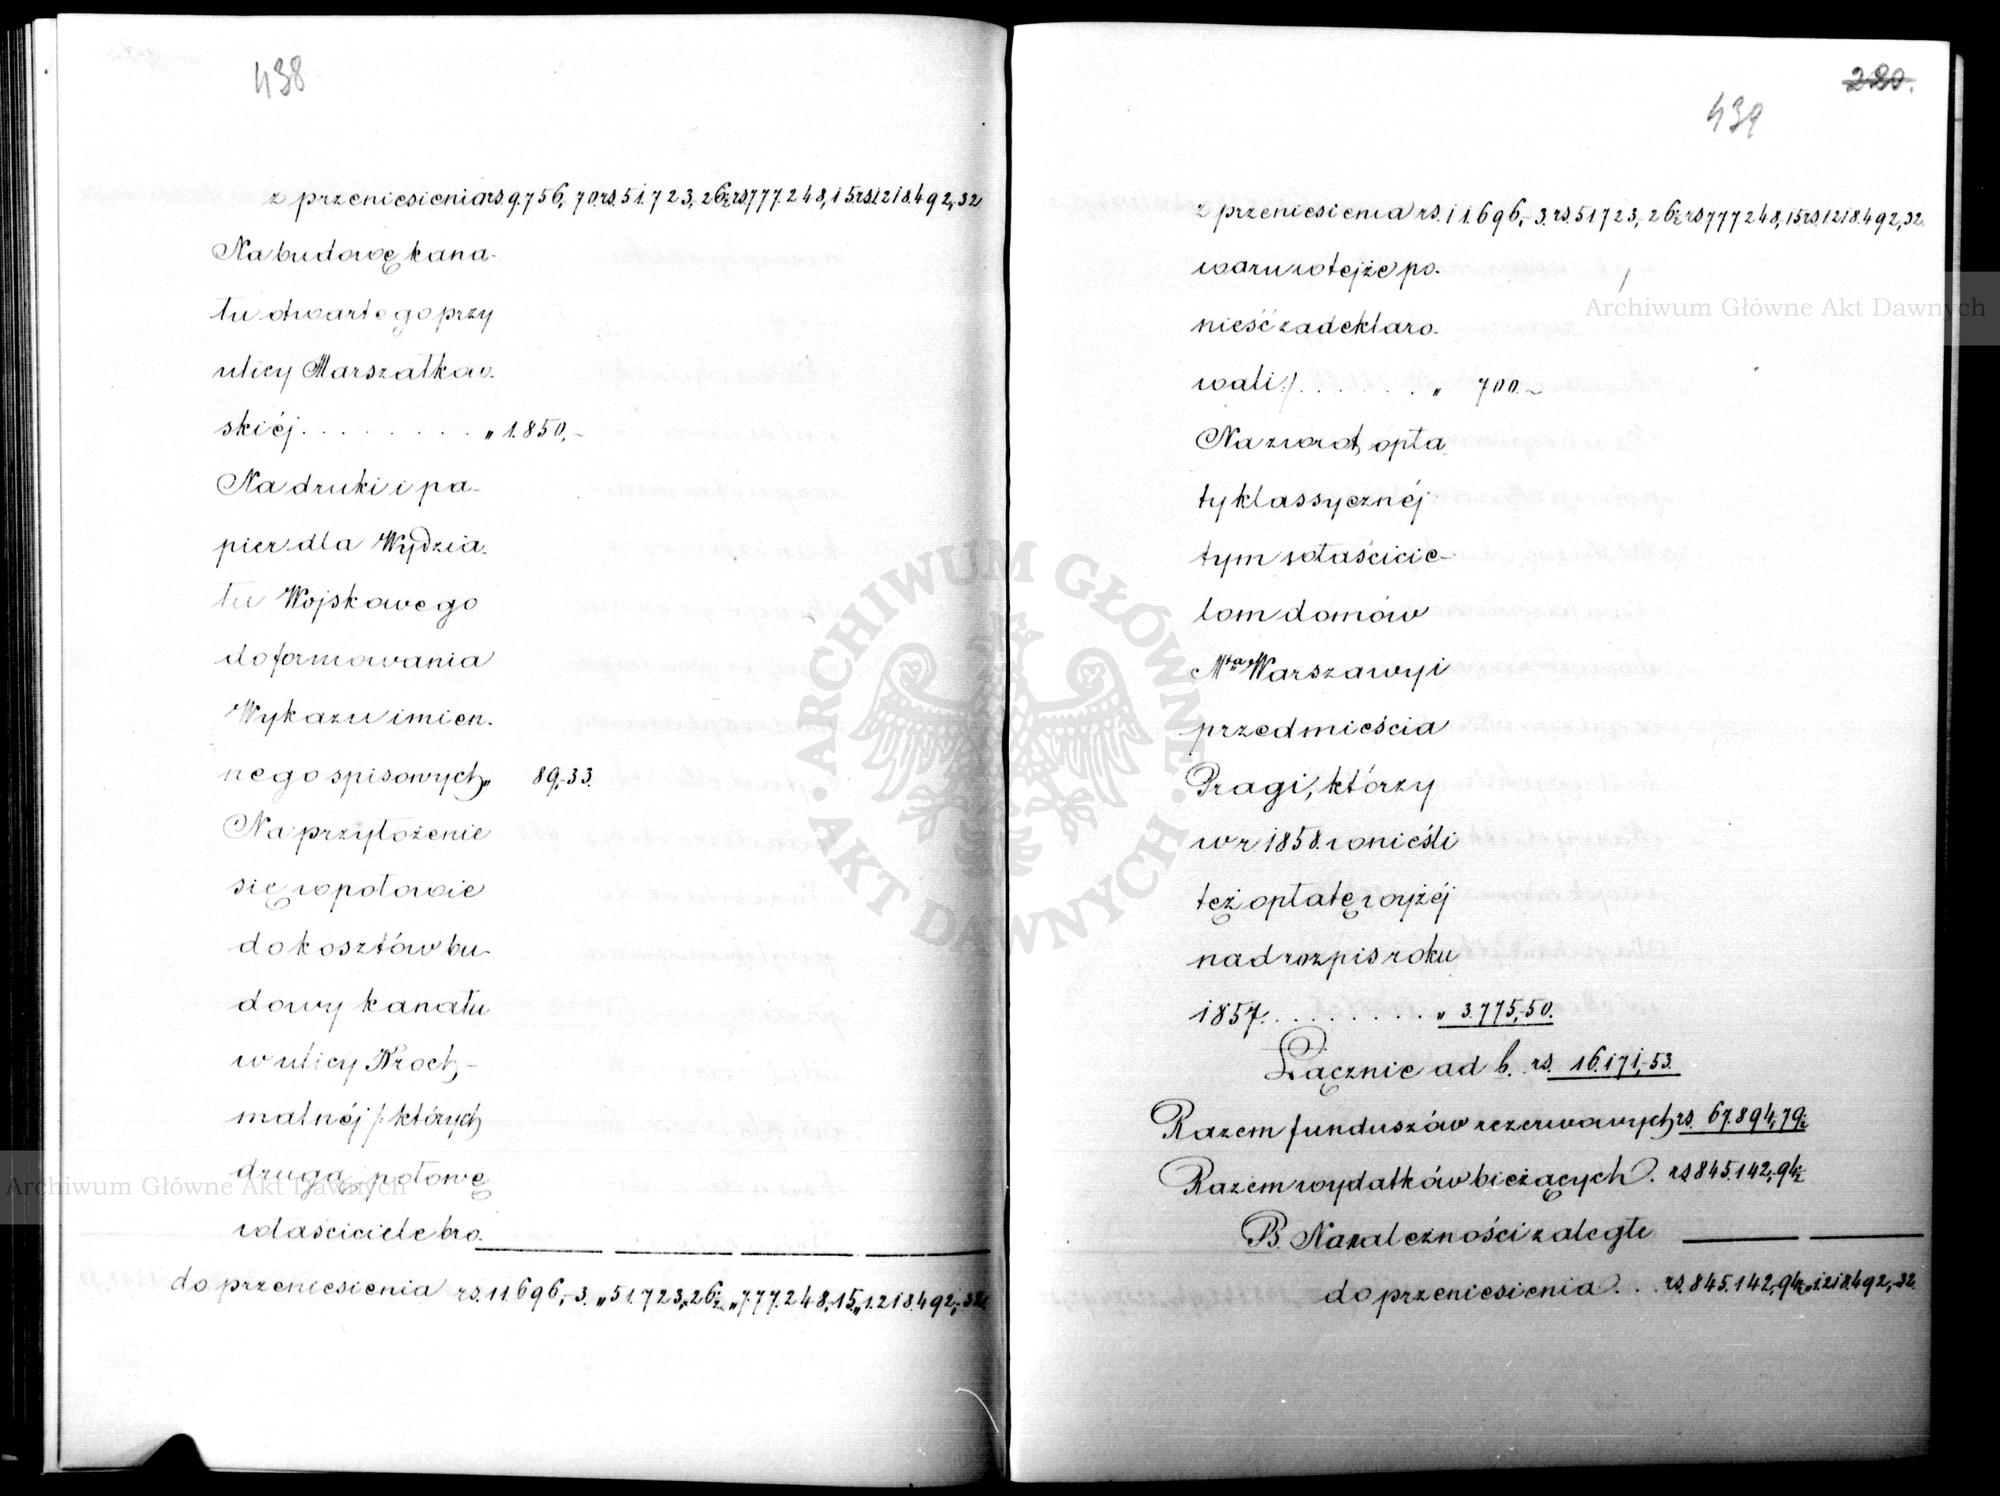 438
z przeniesienia rs. 9.756,70. rs. 51.723,26½ rs. 777.248,15 rs. 1218.492,32
Na budowę kana-
łu otwartego przy
ulicy Marszałkow-
skiéj . . . . . . . . „ 1.850,-
Na druki i pa-
pier dla Wydzia-
łu Wojskowego
do formowania
Wykazu imien-
nego spisowych „ 89,-33.
Na przyłożenie
się w połowie
do kosztów bu-
dowy kanału
w ulicy Kroch-
malnéj /: których
drugą połowę
właściciele bro-
do przeniesienia rs. 11.696,-3. „ 51.723,26½ „ 777.248,-15 „ 1.218.492,-32
280.
439
z przeniesienia rs. 11.696,-3. rs. 51723,-26½ rs 777248,-15 rs. 1218.492,32.
waru w tejże po-
nieść zadeklaro-
wali :/ . . . . . . „ 700.-
Na zwrot opła-
ty klassycznéj
tym właścicie-
lom domów
Mta Warszawy i
przedmieścia
Pragi, którzy
w r. 1858. wnieśli
też opłatę wyżéj
nad rozpis roku
1857. . . . . . . . „ 3.775,-50.
Łącznie ad b. rs. 16.171,-53.
Razem funduszów rezerwowych rs. 67.894,79½
Razem wydatków bieżących . rs 845.142,-94½
B. Na zaleczności zaległe
do przeniesienia . . . rs. 845.142,-94½ „ 1.218.492,-32.
Archiwum Główne Akt Dawnych
Archiwum Główne Akt Dawnych
ARCHIWUM GŁÓWNE · AKT DAWNYCH ·